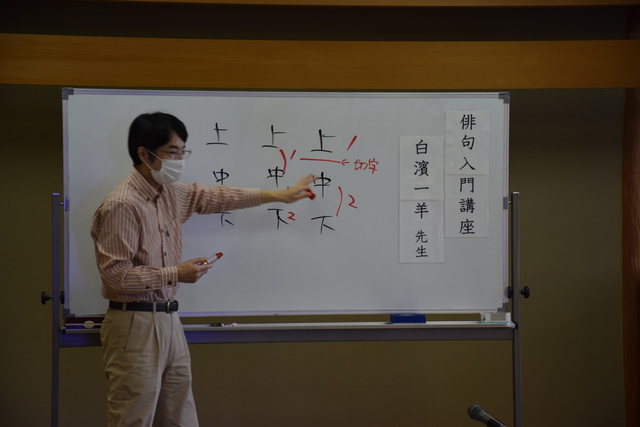 俳句入門講座
白濱一羊 先生
上中下
1 2
←切字
上中下
1 2
上中下